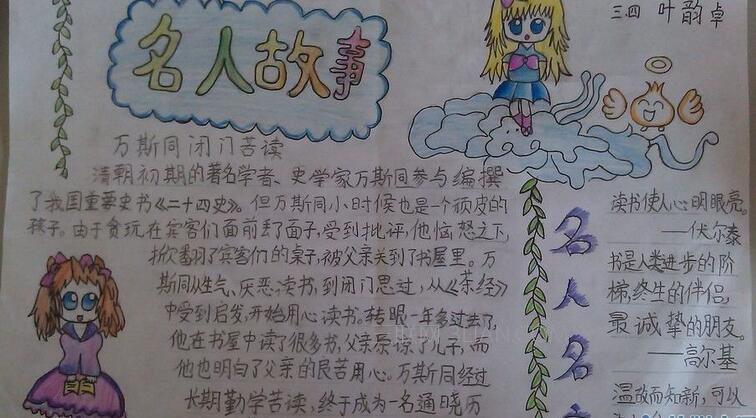 名人故事
三.四 叶韵卓
万斯同闭门苦读
清朝初期的著名学者、史学家万斯同参与编撰
了我国重要史书《二十四史》。但万斯同小时候也是一个顽皮的
孩子。由于贪玩在宾客们面前丢了面子,受到批评,他恼怒之下,
掀翻了宾客们的桌子,被父亲关到了书屋里。万
斯同从生气、厌恶读书,到闭门思过,从《茶经》
中受到启发,开始用心读书。转眼一年多过去了,
他在书屋中读了很多书,父亲原谅了儿子,而
他也明白了父亲的良苦用心。万斯同经过
长期勤学苦读,终于成为一名通晓历
名人名
读书使人心明眼亮。
——伏尔泰
书是人类进步的阶
梯,终生的伴侣,
最诚挚的朋友。
——高尔基
温故而知新,可以